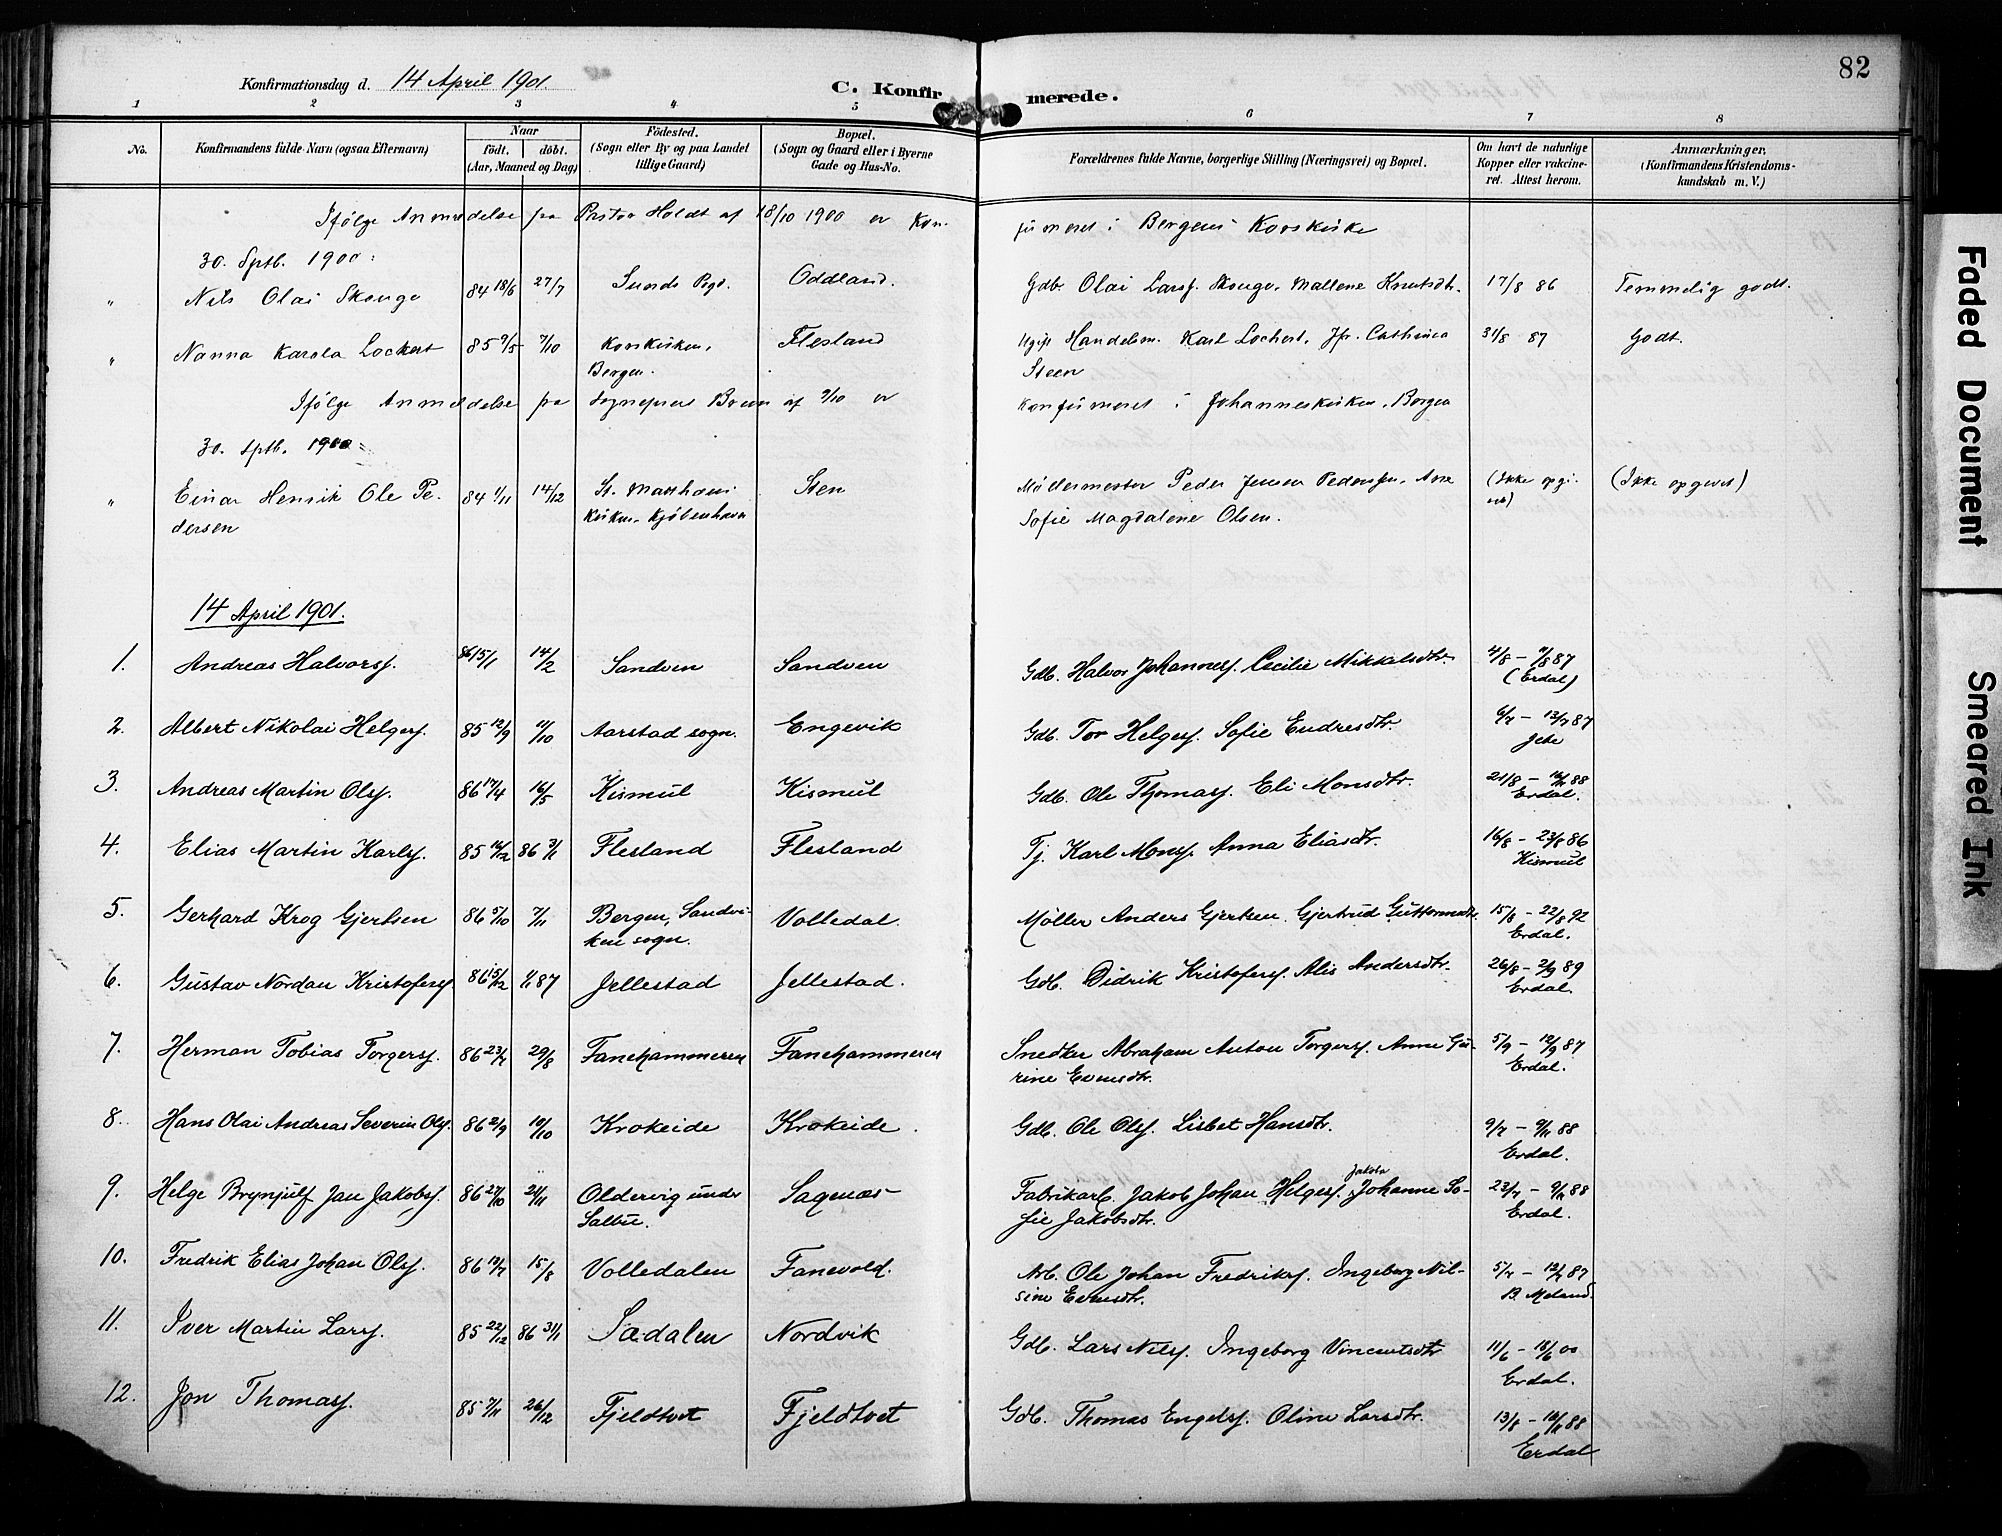 82
Konfirmationsdag d. 14 April 1901.
C. Konfirmerede.
1 2 3 4 5 6 7 8
No. Konfirmandens fulde Navn (ogsaa Efternavn) Naar født. døbt. (Aar, Maaned og Dag) Fødested. (Sogn eller By og paa Landet tillige Gaard) Bopæl. (Sogn og Gaard eller i Byerne Gade og Hus-No. Forældrenes fulde Navne, borgerlige Stilling (Næringsvei) og Bopæl. Om havt de naturlige Kopper eller vakcineret. Attest herom. Anmærkninger. (Konfirmandens Kristendomskundskab m. V.)
Ifölge Anmeldelse fra Pastor Holdt af 18/10 1900 er Kon- firmeret i Bergens Korskirke
30. Sptb. 1900:
" Nils Olai Skouge 84 18/6 27/7 Sunds Pgd. Oddland. Gdb. Olai Larss. Skouge, Mallene Knutsdtr. 17/8 86 Temmelig godt.
" Nanna Karola Lockert 85 9/5 7/10 Korskirken, Flesland Ugift Handelsm. Karl Lochert, Jfr. Cathrina 31/8 87 Godt.
Bergen. Steen
Ifölge Anmeldelse fra Sogneprest Breen af 9/10 er Konfirmeret i Johanneskirken, Bergen
30. Sptb. 1900:
" Einar Henrik Ole Pe- 84 1/11 14/12 St. Matthæus Sten Möllermester Peder Jensen Pedersen, Ane (Ikke opgi- (Ikke opgivet)
dersen Kirken, Kjöbenhavn Sofie Magdalene Olsen. vet)
14 April 1901.
1. Andreas Halvorss. 86 15/1 14/2 Sandven Sandven Gdb. Halvor Johanness. Cecilie Mikkelsdtr. 4/8 - 11/8 87
(Erdal)
2. Albert Nikolai Helges. 85 12/9 11/10 Aarstad sogn. Engevik Gdb. Tor Helges. Sofie Endresdtr. 6/7 - 13/7 87
3. Andreas Martin Olss. 86 17/4 16/5 Kismul Kismul Gdb. Ole Thomass. Eli Monsdtr. 21/8 - 88
Erdal.
4. Elias Martin Karlss. 85 16/12 86 3/1 Flesland Flesland Tj. Karl Monss. Anna Eliasdtr. 16/8 - 23/8 86
Kismul
5. Gerhard Krog Gjertsen 86 5/10 7/11 Bergen, Sandvi- Volledal. Møller Anders Gjertsen. Gjertrud Guttormsdtr. 15/8 - 22/8 92
ken sogn. Erdal.
6. Gustav Nordan Kristofers. 86 15/12 1/1 87 Jellestad Jellestad. Gdb. Didrik Kristofers. Alis Andersdtr. 26/8 - 2/9 89
Erdal.
7. Herman Tobias Torgers. 86 23/7 29/8 Fanehammeren Fanehammeren Snedker Abraham Anton Torgers. Anne Gu- 5/9 - 12/9 87
rine Evensdtr. Erdal.
8. Hans Olai Andreas Severin Olss. 86 2/9 10/10 Krokeide Krokeide. Gdb. Ole Olss. Lisbet Hansdtr. 9/7 - 88
Erdal.
9. Helge Brynjulf Jan Jakobs. 86 27/10 21/11 Oldervig under Sagenæs Fabrikarb. Jakob Johan Helges. Jakoba Johanne So- 23/7 - 88
Salbu. fie Jakobsdtr. Erdal.
10. Fredrik Elias Johan Olss. 86 12/7 15/8 Volledalen Fanevold. Arb. Ole Johan Fredriks. Ingeborg Nil- 5/7 - 12/7 87
sine Evensdtr. B. Meland.
11. Iver Martin Larss. 85 22/12 86 31/1 Sædalen Nordvik Gdb. Lars Nilss. Ingeborg Vincentsdtr. 11/6 - 18/6 00
Erdal.
12. Jon Thomass. 85 7/11 26/12 Fjeldtvet Fjeldtvet Gdb. Thomas Engelss. Oline Larsdtr. 13/8 - 88
Erdal
Faded Document
Smeared Ink